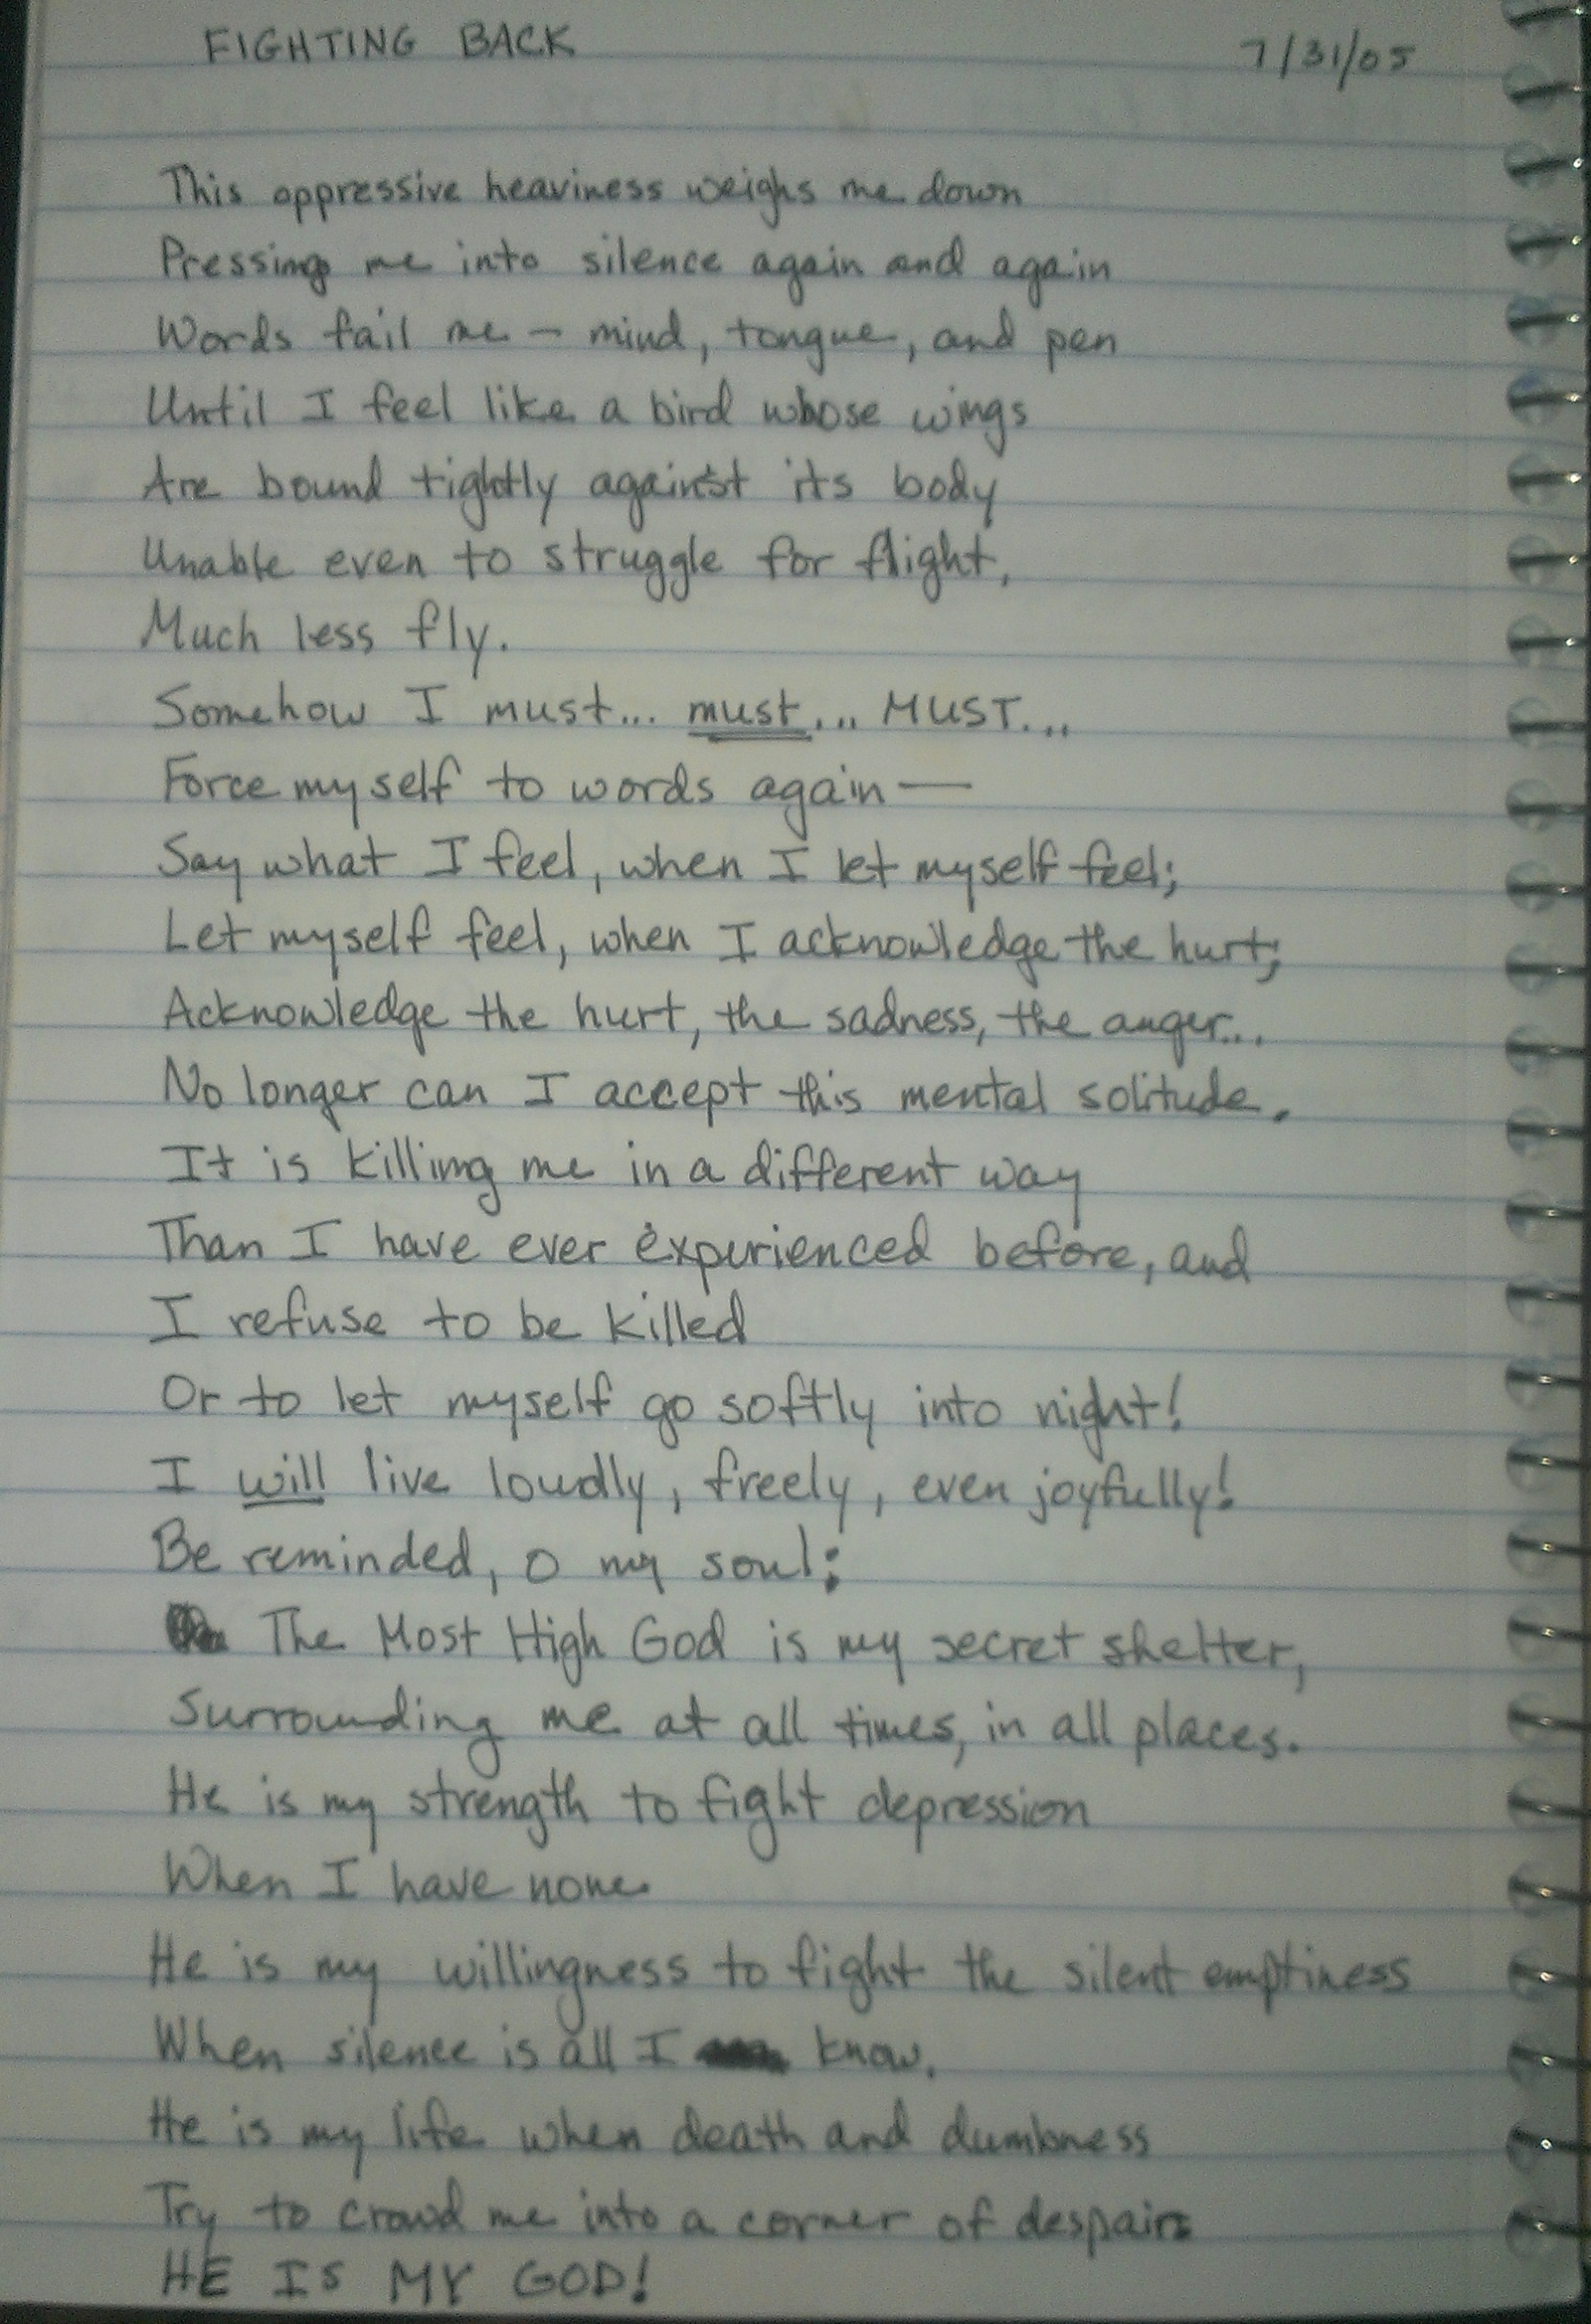 FIGHTING BACK 7/31/05
This oppressive heaviness weighs me down
Pressing me into silence again and again
Words fail me — mind, tongue, and pen
Until I feel like a bird whose wings
Are bound tightly against its body
Unable even to struggle for flight,
Much less fly.
Somehow I must... must... MUST...
Force myself to words again —
Say what I feel, when I let myself feel;
Let myself feel, when I acknowledge the hurt;
Acknowledge the hurt, the sadness, the anger...
No longer can I accept this mental solitude.
It is killing me in a different way
Than I have ever experienced before, and
I refuse to be killed
Or to let myself go softly into night!
I will live loudly, freely, even joyfully!
Be reminded, O my soul:
The Most High God is my secret shelter,
Surrounding me at all times, in all places.
He is my strength to fight depression
When I have none.
He is my willingness to fight the silent emptiness
When silence is all I know.
He is my life when death and dumbness
Try to crowd me into a corner of despair.
HE IS MY GOD!